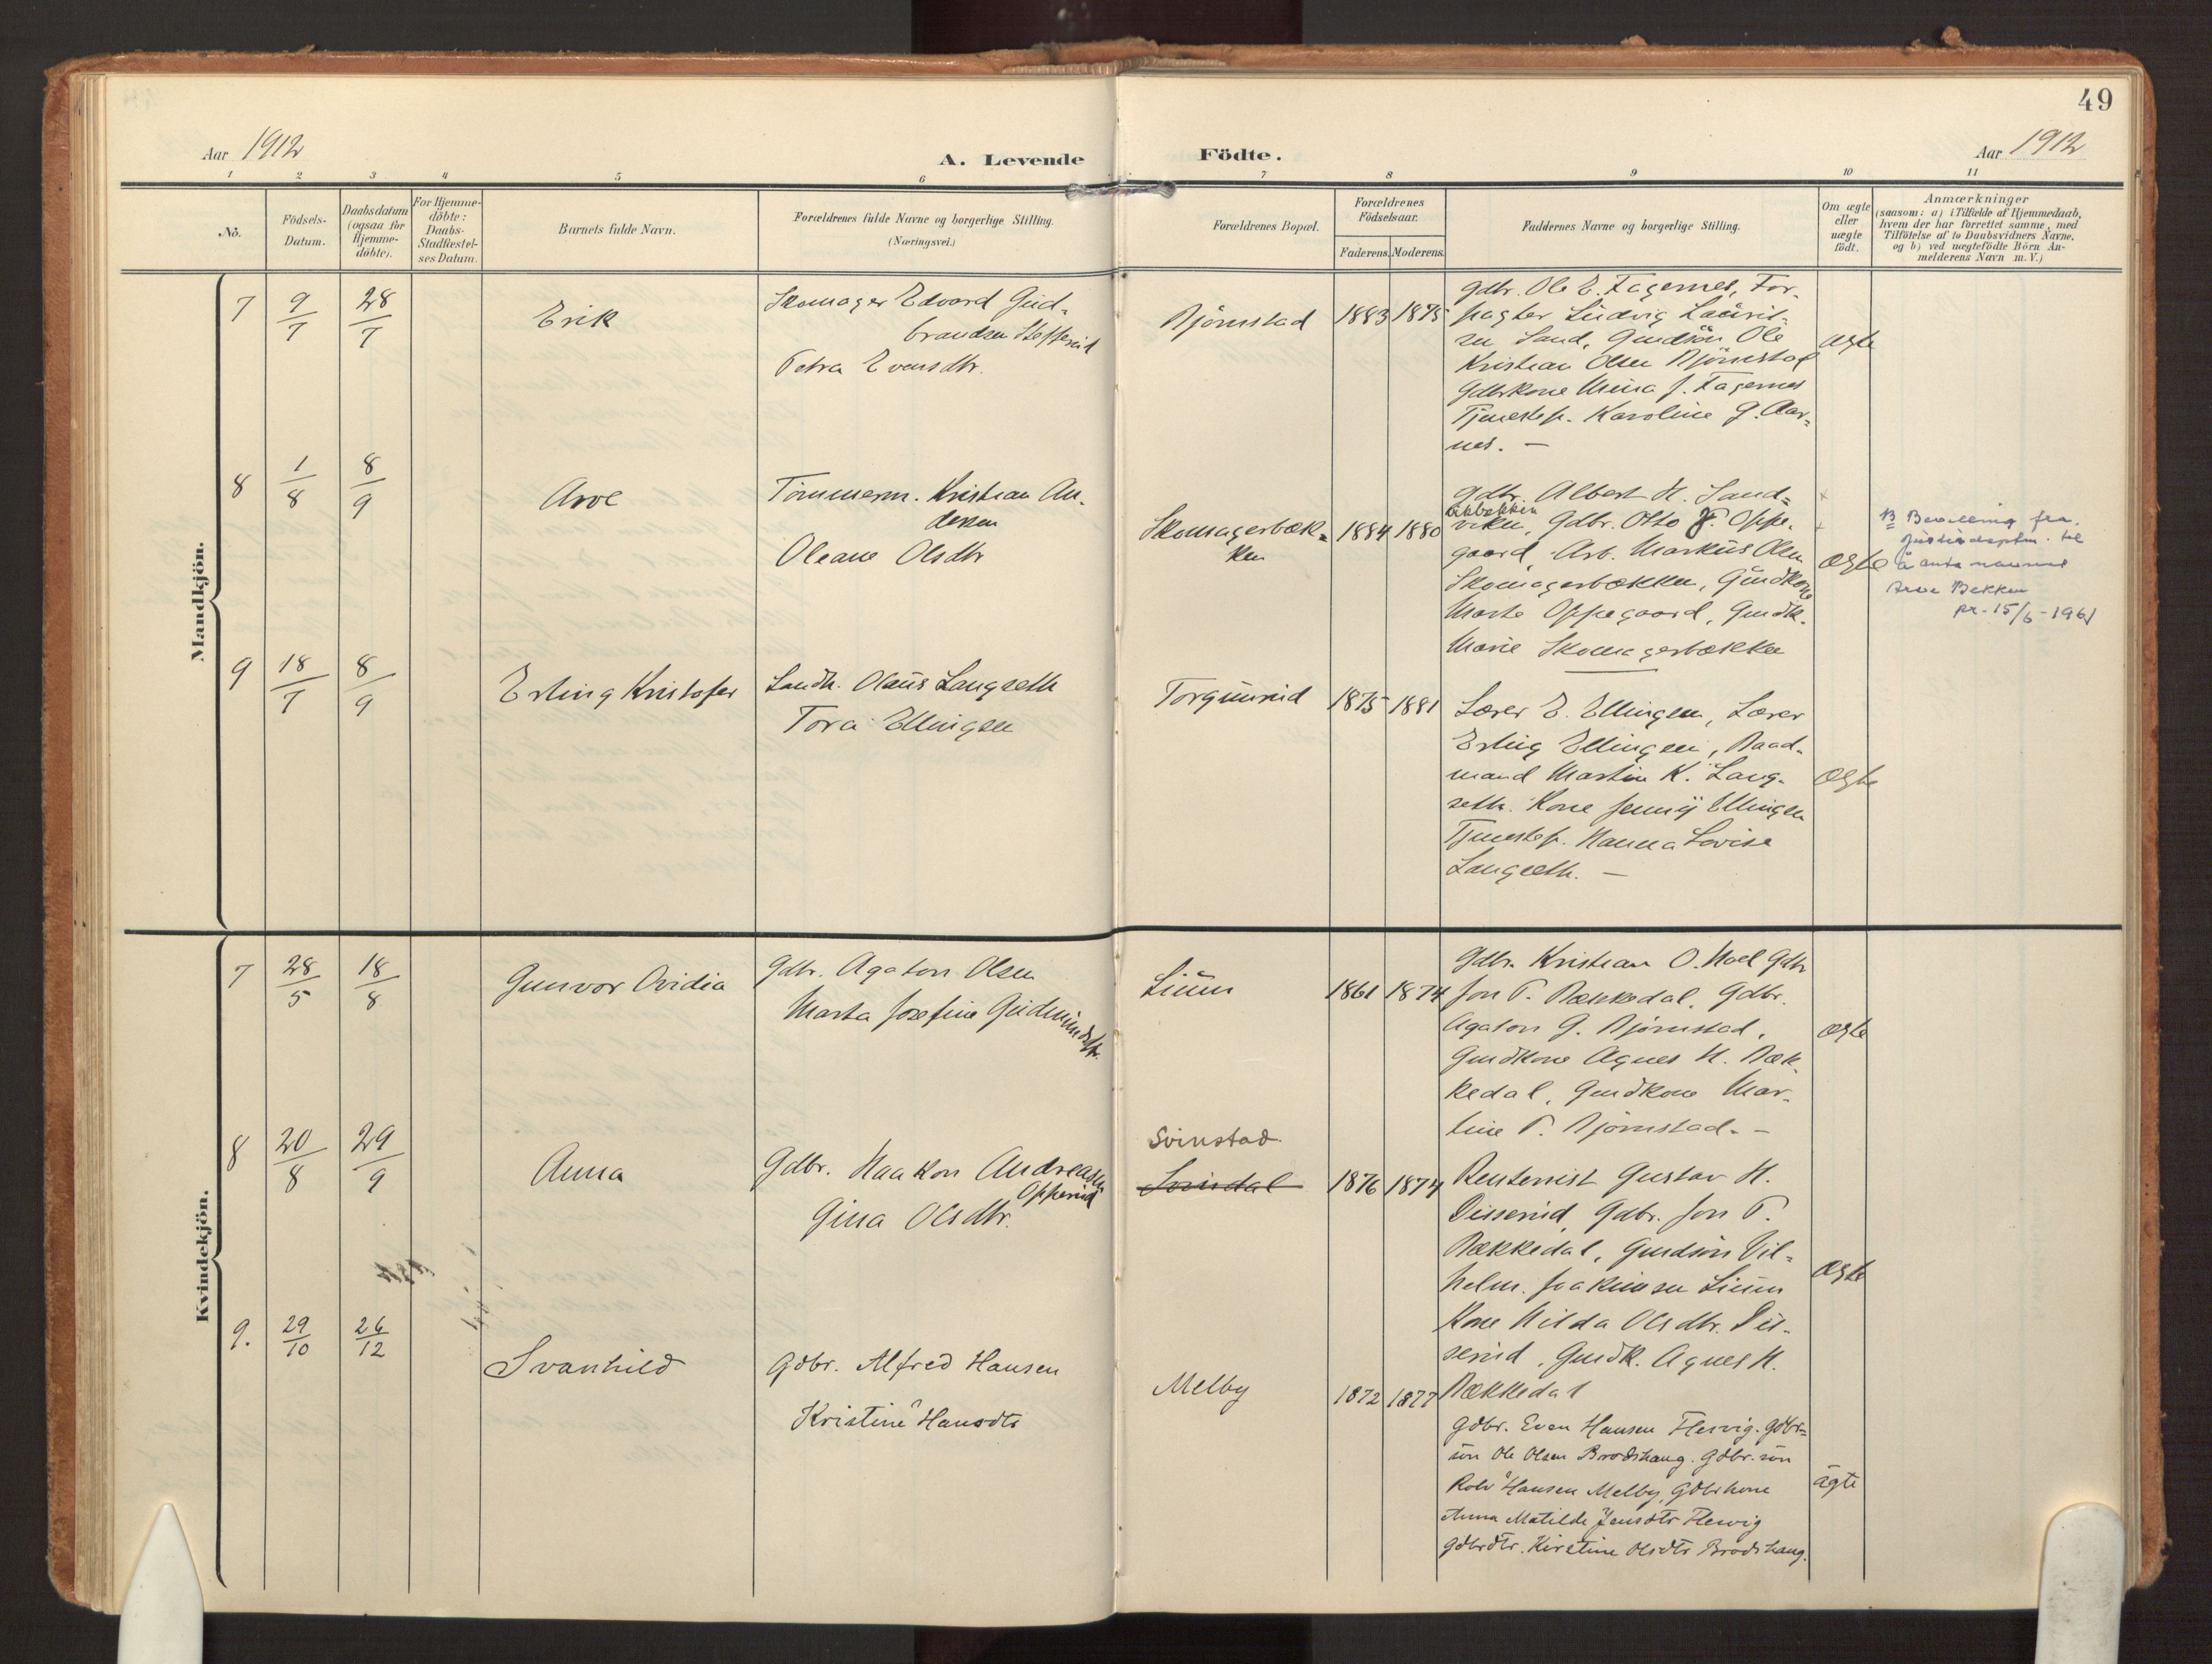 49
Aar 1912
A. Levende
Födte.
Aar 1912
1 2 3 4 5 6 7 8 9 10 11
No.
Födsels-
Datum.
Daabsdatum
(ogsaa for
Hjemme-
döbte).
For Hjemme-
döbte:
Daabs-
Stadfæstel-
ses Datum.
Barnets fulde Navn.
Forældrenes fulde Navne og borgerlige Stilling.
(Næringsvei.)
Forældrenes Bopæl.
Forældrenes
Födselsaar.
Faderens. Moderens.
Faddernes Navne og borgerlige Stilling.
Om ægte
eller
uægte
födt.
Anmærkninger
(saasom: a) i Tilfælde af Hjemmedaab,
hvem der har forrettet samme, med
Tilföielse af to Daabsvidners Navne,
og b) ved uægtefödte Börn An-
melderens Navn m. V.)
Mandkjön.
7 9/7 28/7 Erik
Skomager Edvard Gud-
brandsen
Petra Evensdtr.
Bjørnstad 1883 1875
Gdbr. Ole E. Fagernes, For-
pagter Ludvig Laurit-
zen Sand, Gmdsön Ole
Kristian Olsen Björnstad
Gdbrkone Mina J. Fagernes
Tjenestep. Karoline G. Aar-
nes. —
ægte
8 1/8 8/9 Arve
Tömmerm. Kristian An-
dersen
Oleane Olsdtr
Skomagerbæk-
ken
1884 1880
Gdbr. Albert H. Sand-
viken, Gdbr. Otto F. Oppe-
gaard Arb. Markus Olsen
Skomagerbækken, Gmdkone
Marte Oppegaard, Gmdk.
Marie Skomagerbækken
ægte
B Bevilling fra
Justisdeptm. til
å anta navnet
Arve Bekken
pr. 15/6-1961
9 18/7 8/9 Erling Kristofer
Landh. Olaus Langseth
Tora Ellingsen
Torgunrud 1875 1881
Lærer E. Ellingsen, Lærer
Erling Ellingsen, Baad-
mand Martin K. Lang-
seth. Kone Jenny Ellingsen
Tjenestep. Hanna Lovise
Langseth. —
ægte
Kvindekjön.
7 28/5 18/8 Gunvor Ovidia
Gdbr. Agaton Olsen
Marta Josefine Gudmundsdtr.
Lium 1861 1874
Gdbr. Kristian O. Hoel Gdbr
Jon P. Bækkedal, Gdbr.
Agaton G. Bjørnstad,
Gmdkone Agnes H. Bæk-
kedal, Gmdkone Mar-
tine P. Bjørnstad. —
ægte
8 20/8 29/9 Anna
Gdbr. Haakon Andreasen
Opperud
Gina Olsdtr.
Svinstad
Svindal
1876 1874
Rentenist Gustav H.
Disserud, Gdbr. Jon P.
Bækkedal, Gmdsön Vil-
helm Joakimsen Lium
Kone Hilda Olsdtr. Dis-
serud, Gmdk. Agnes H.
Bækkedal
ægte
9. 29/10 26/12 Svanhild
Gdbr. Alfred Hansen
Kristine Hansdtr
Melby 1872 1877
Gdbr. Even Hansen Flesvig. Gdbr-
sön Ole Olsen Brodshaug. Gdbr. sön
Rolv Hansen Melby, Gdbrkone
Anna Matilde Jensdtr Flesvig
Gdbrdtr. Kirstine Olsdtr Brodshaug.
ägte